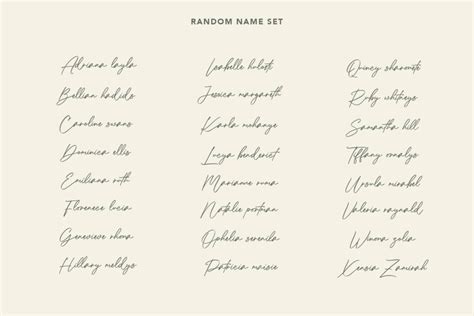 RANDOM NAME SET
Adriana layla
Bellian hadids
Caroline swans
Dominica ellis
Emiliana ruth
Florenece lucia
Genevieve rhoma
Hillary meldys
Isabelle
Jessica margareth
Karla
Lucya benderict
Marianne
Natalie portman
Ophelia serenida
Patricia maisie
Quincy
Ruby whitneys
Samantha hill
Tiffany ronalys
Ursula mirabel
Valeria raynald
Winona zolia
Xensia Zamirah